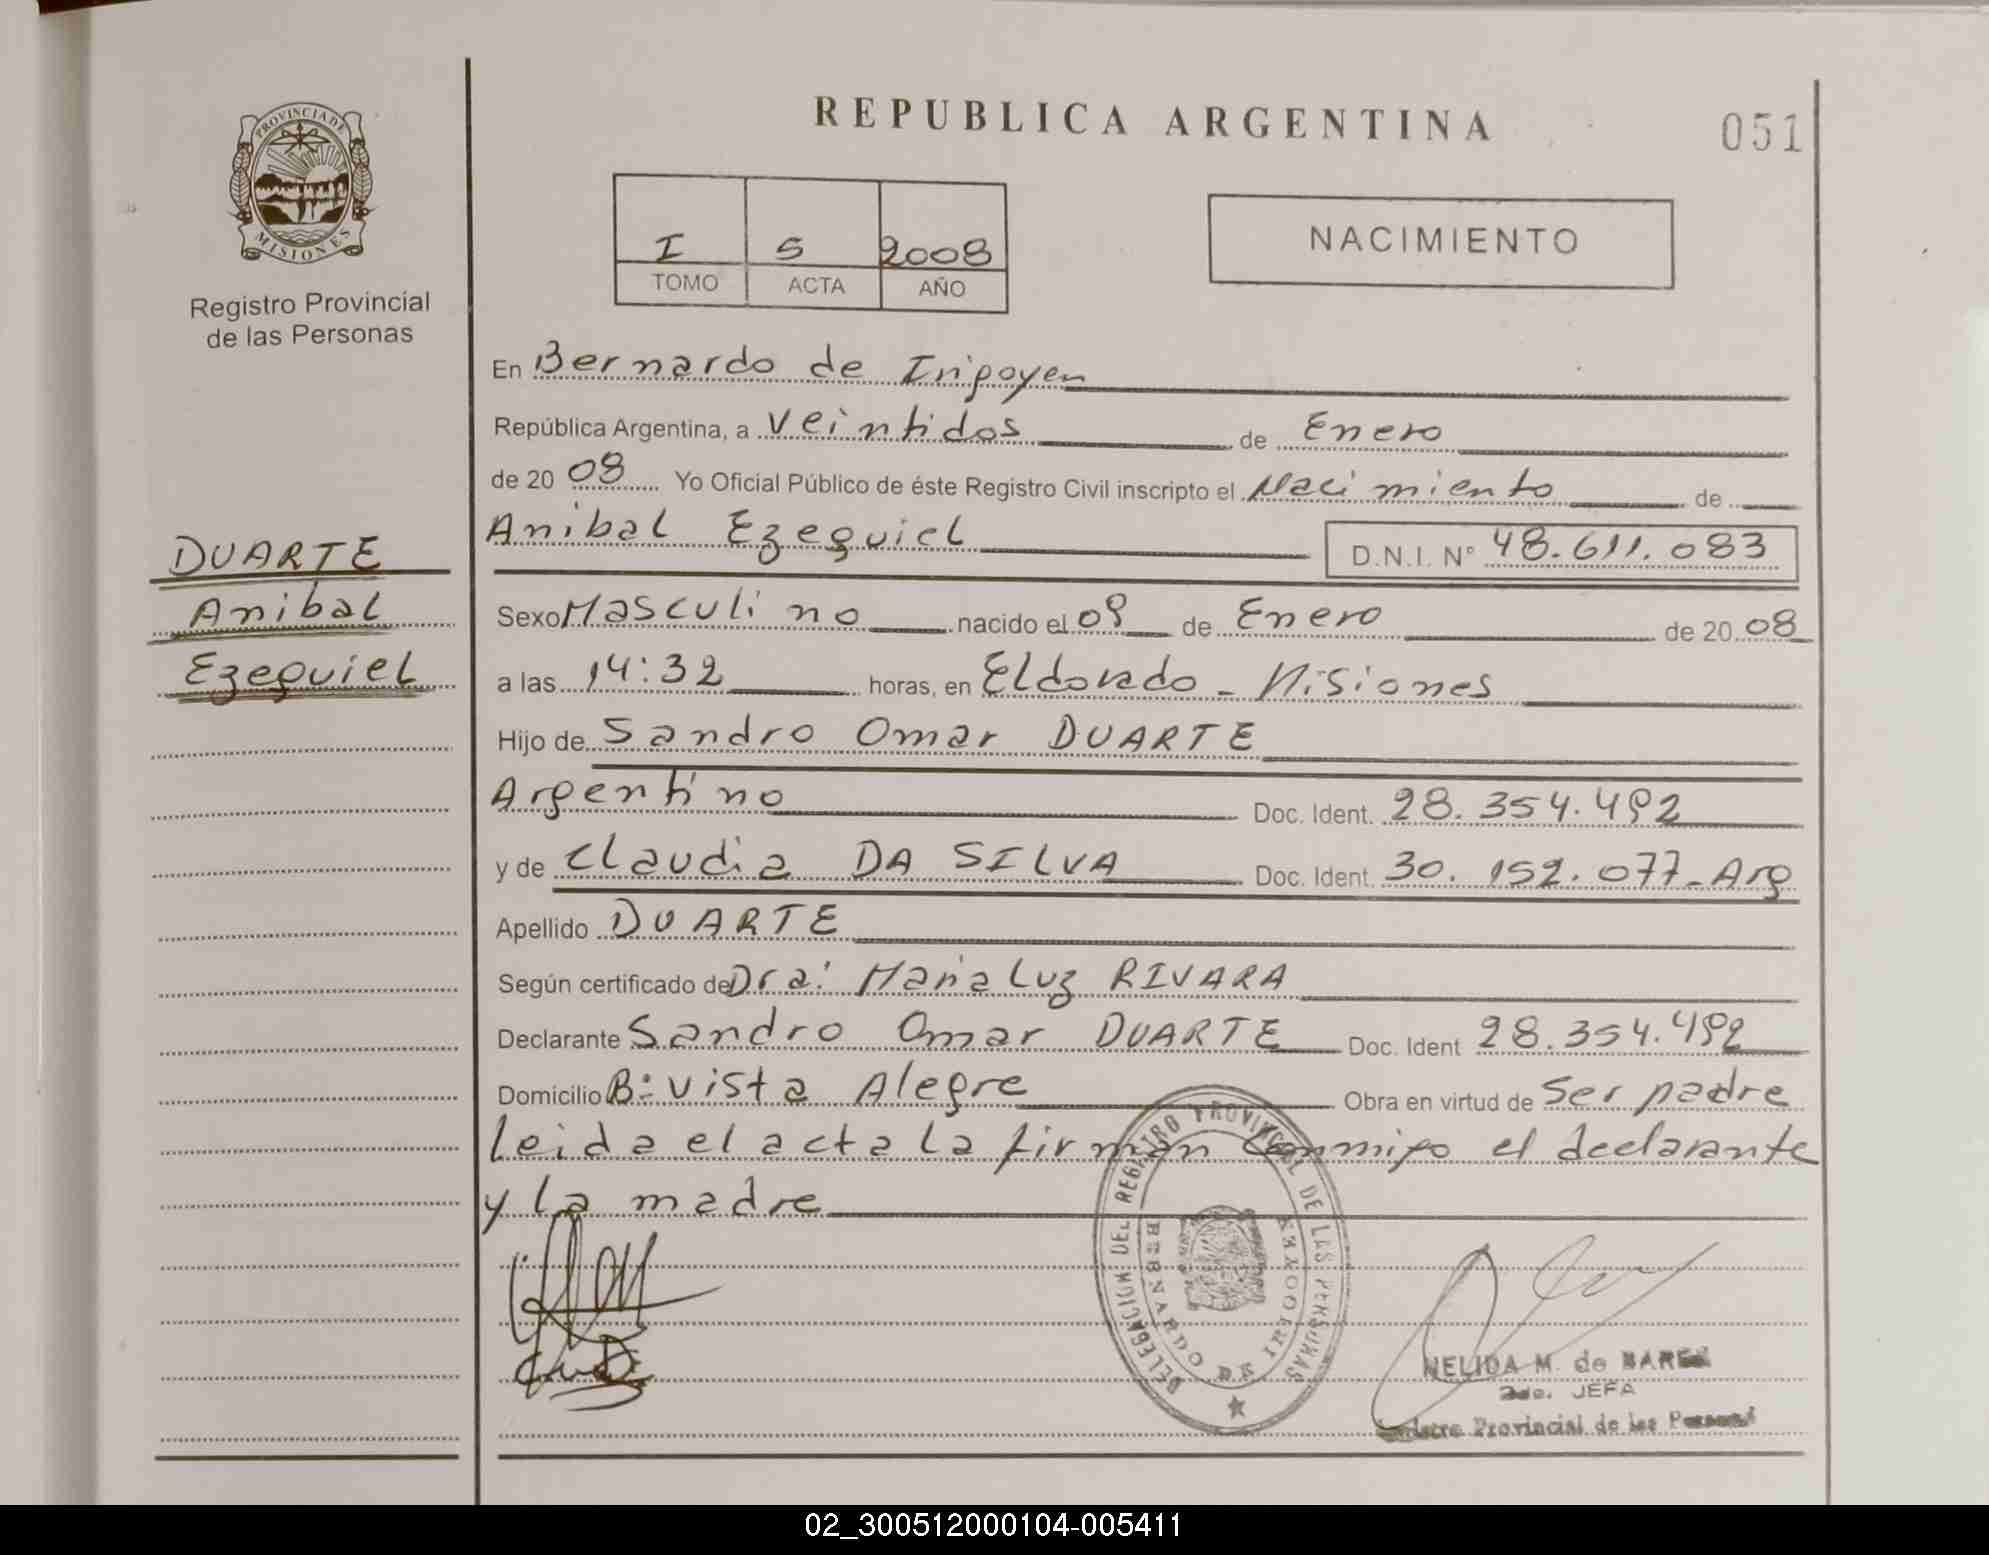 REPUBLICA ARGENTINA
051
PROVINCIA DE MISIONES
Registro Provincial
de las Personas
I 5 2008
TOMO ACTA AÑO
NACIMIENTO
DUARTE
Anibal
Ezequiel
En Bernardo de Irigoyen
República Argentina, a veintidos de Enero
de 2008 Yo Oficial Público de éste Registro Civil inscripto el Nacimiento de
Anibal Ezequiel D.N.I. Nº 48.611.083
Sexo Masculino nacido el 09 de Enero de 2008
a las 14:32 horas, en Eldorado - Misiones
Hijo de Sandro Omar DUARTE
Argentino Doc. Ident. 28.354.492
y de Claudia DA SILVA Doc. Ident. 30.152.077-Arg
Apellido DUARTE
Según certificado de Dra: Maria Luz RIVARA
Declarante Sandro Omar DUARTE Doc. Ident 28.354.492
Domicilio Bº Vista Alegre Obra en virtud de ser padre
Leida el acta la firman conmigo el declarante
y la madre
DELEGACION DEL REGISTRO PROVINCIAL DE LAS PERSONAS
BERNARDO DE IRIGOYEN
NELIDA M. de
2da. JEFA
Provincial de las
02_300512000104-005411